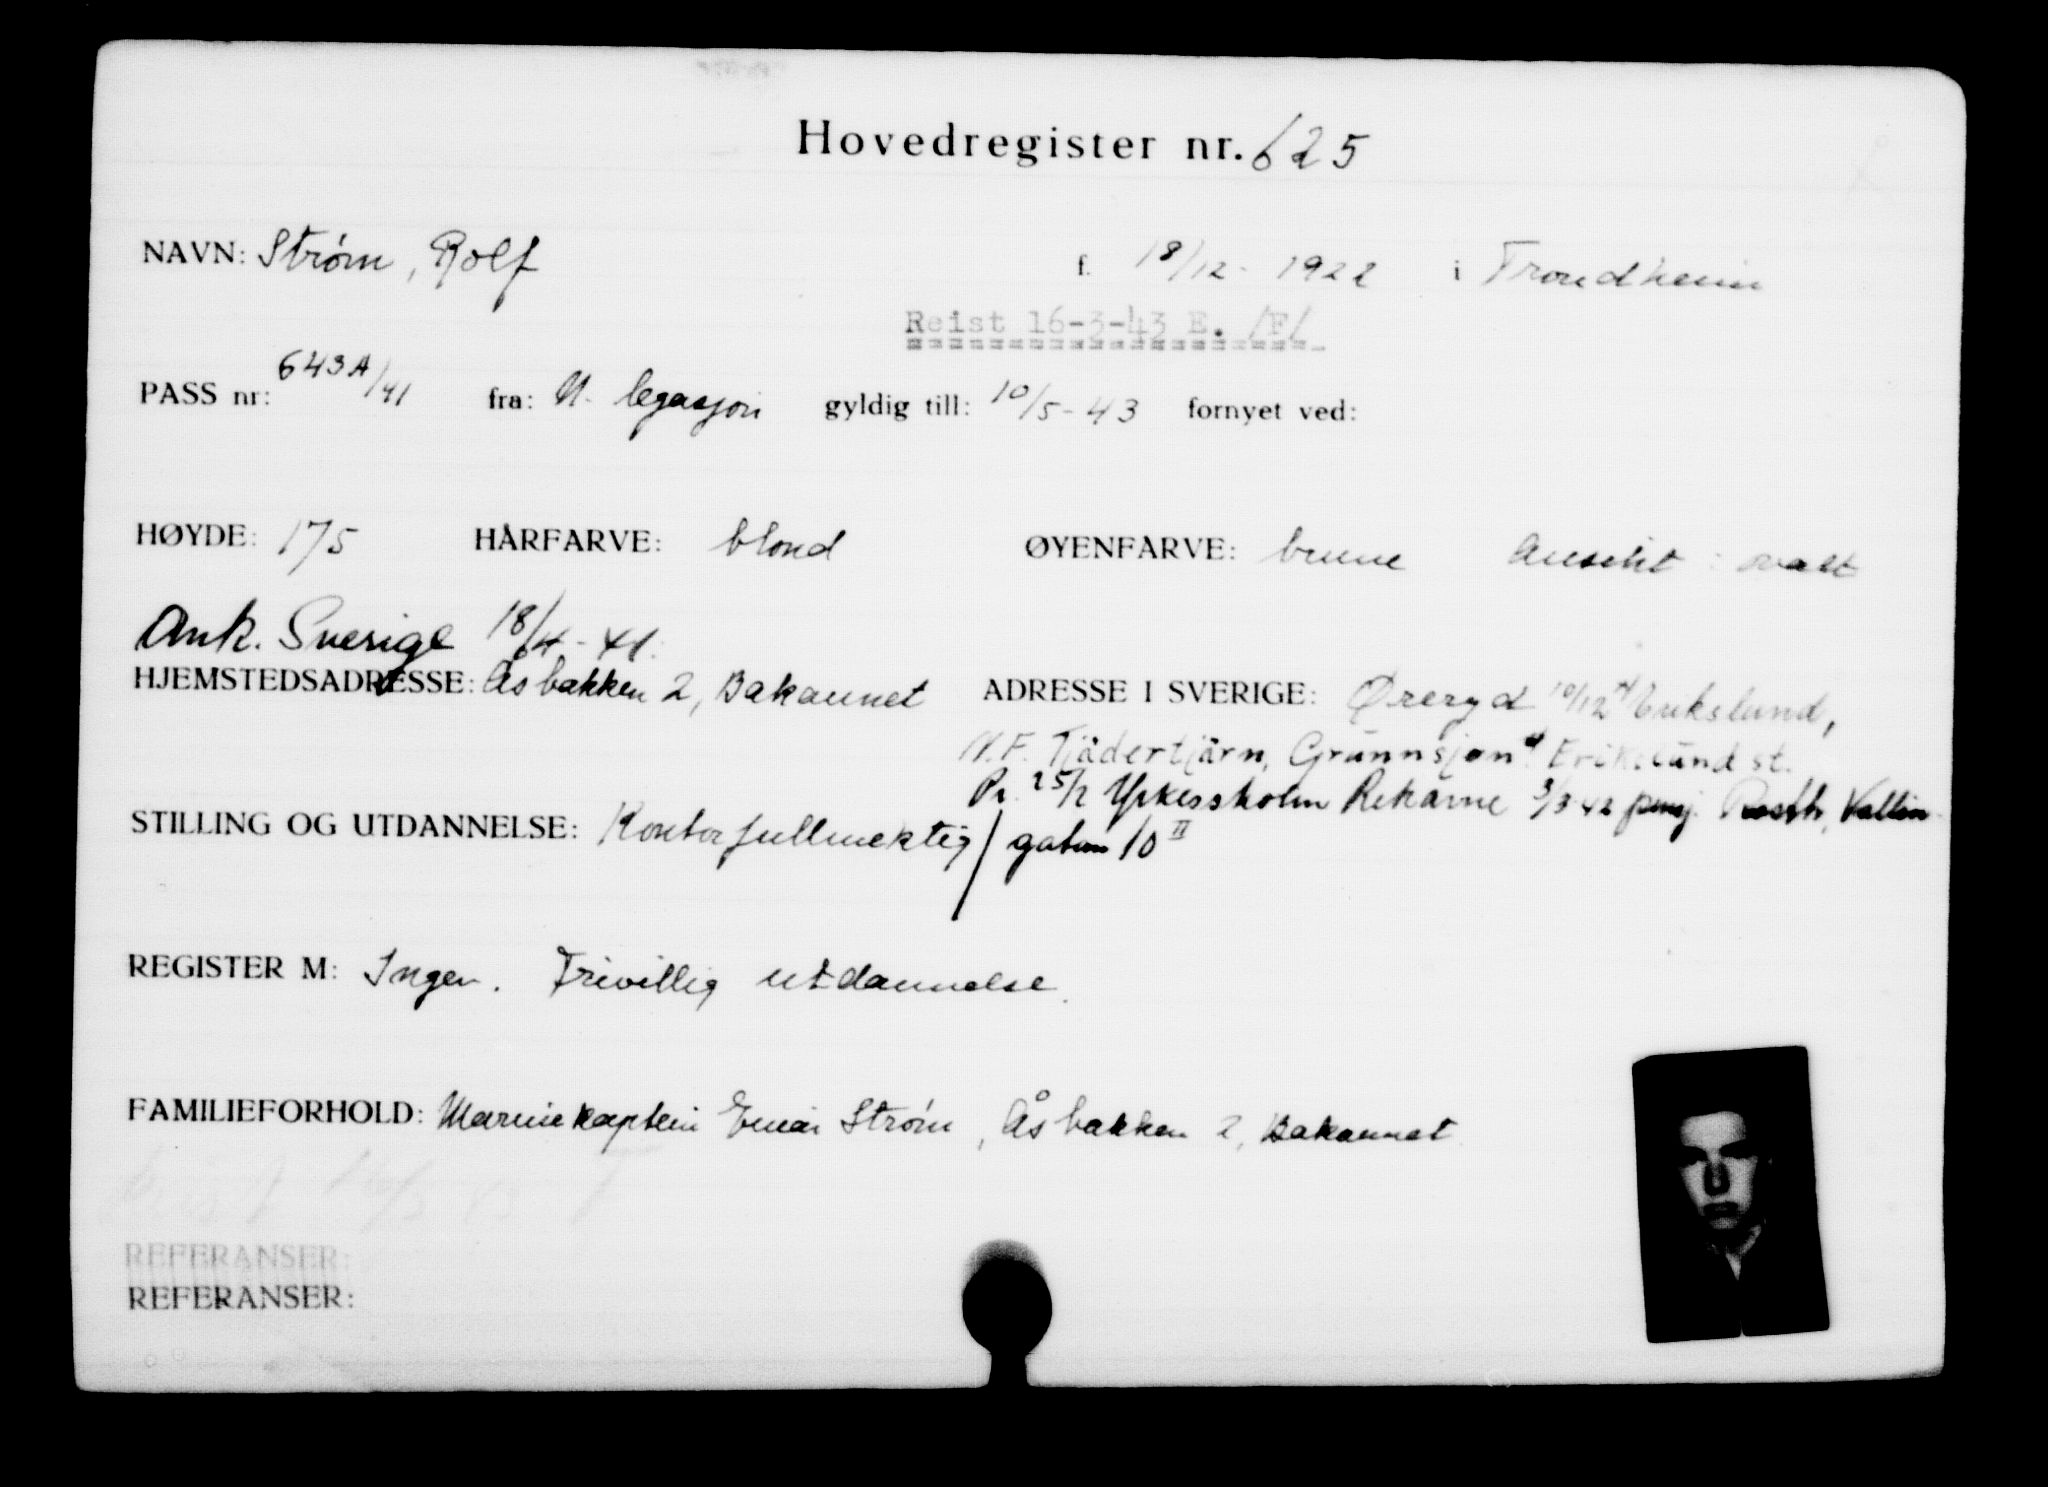 Hovedregister nr. 625
NAVN: Strøm, Rolf f. 18/12 - 1922 i Trondheim
Reist 16-3-43 E. /F/
PASS nr: 643A/41 fra: N. legasjon gyldig till: 10/5 - 43 fornyet ved:
HØYDE: 175 HÅRFARVE: blond ØYENFARVE: brune Ansikt: ovalt
Ank. Sverige 18/4 - 41.
HJEMSTEDSADRESSE: Åsbakken 2, Bakaunet ADRESSE I SVERIGE: Øreryd 10/12 41 Erikslund,
N.F. Tjädertjärn, Grunnsjøn Erikslund st.
Pr. 25/2 Rekarne 3/3 42 pensj. Vallin-
STILLING OG UTDANNELSE: Kontorfullmektig / gatan 10 II
REGISTER M: Ingen. Frivillig utdannelse.
FAMILIEFORHOLD: Marinekaptein Einar Strøm, Åsbakken 2, Bakaunet
Reist 16/3 43 F
REFERANSER:
REFERANSER: